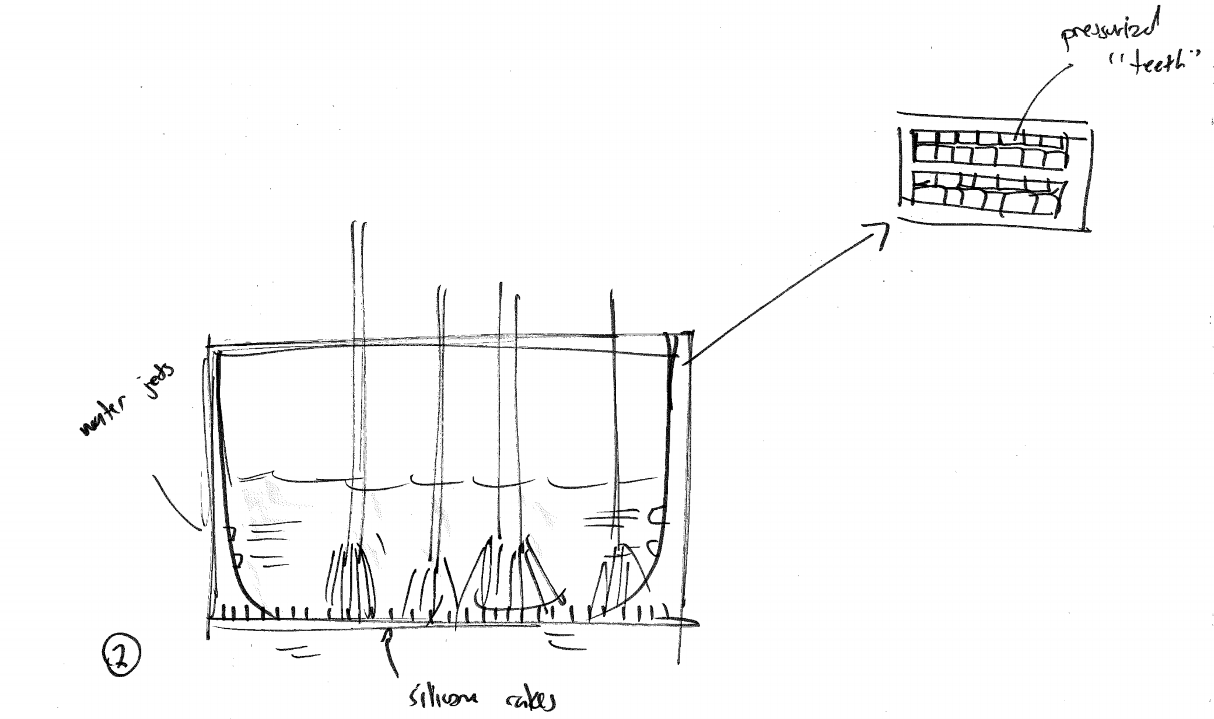 pressurized
"teeth"
water jets
2
silicone rakes